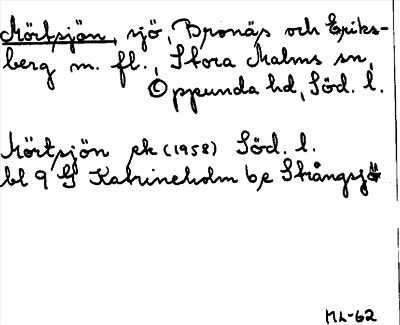 Mörtsjön, sjö, Bronäs och Eriks-
berg m. fl., Stora Malms sn,
Oppunda hd, Söd. l.
Mörtsjön ek (1958) Söd. l.
bl 9 G Katrineholm 6,e Strångsjö
ML-62